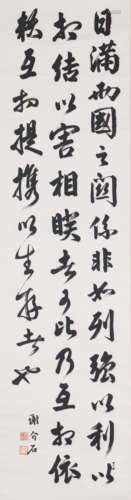 日滿兩國之關係非如列強以利以
相結以害相睽者可比乃互相依
扶互相提攜以生存者也
謝介石